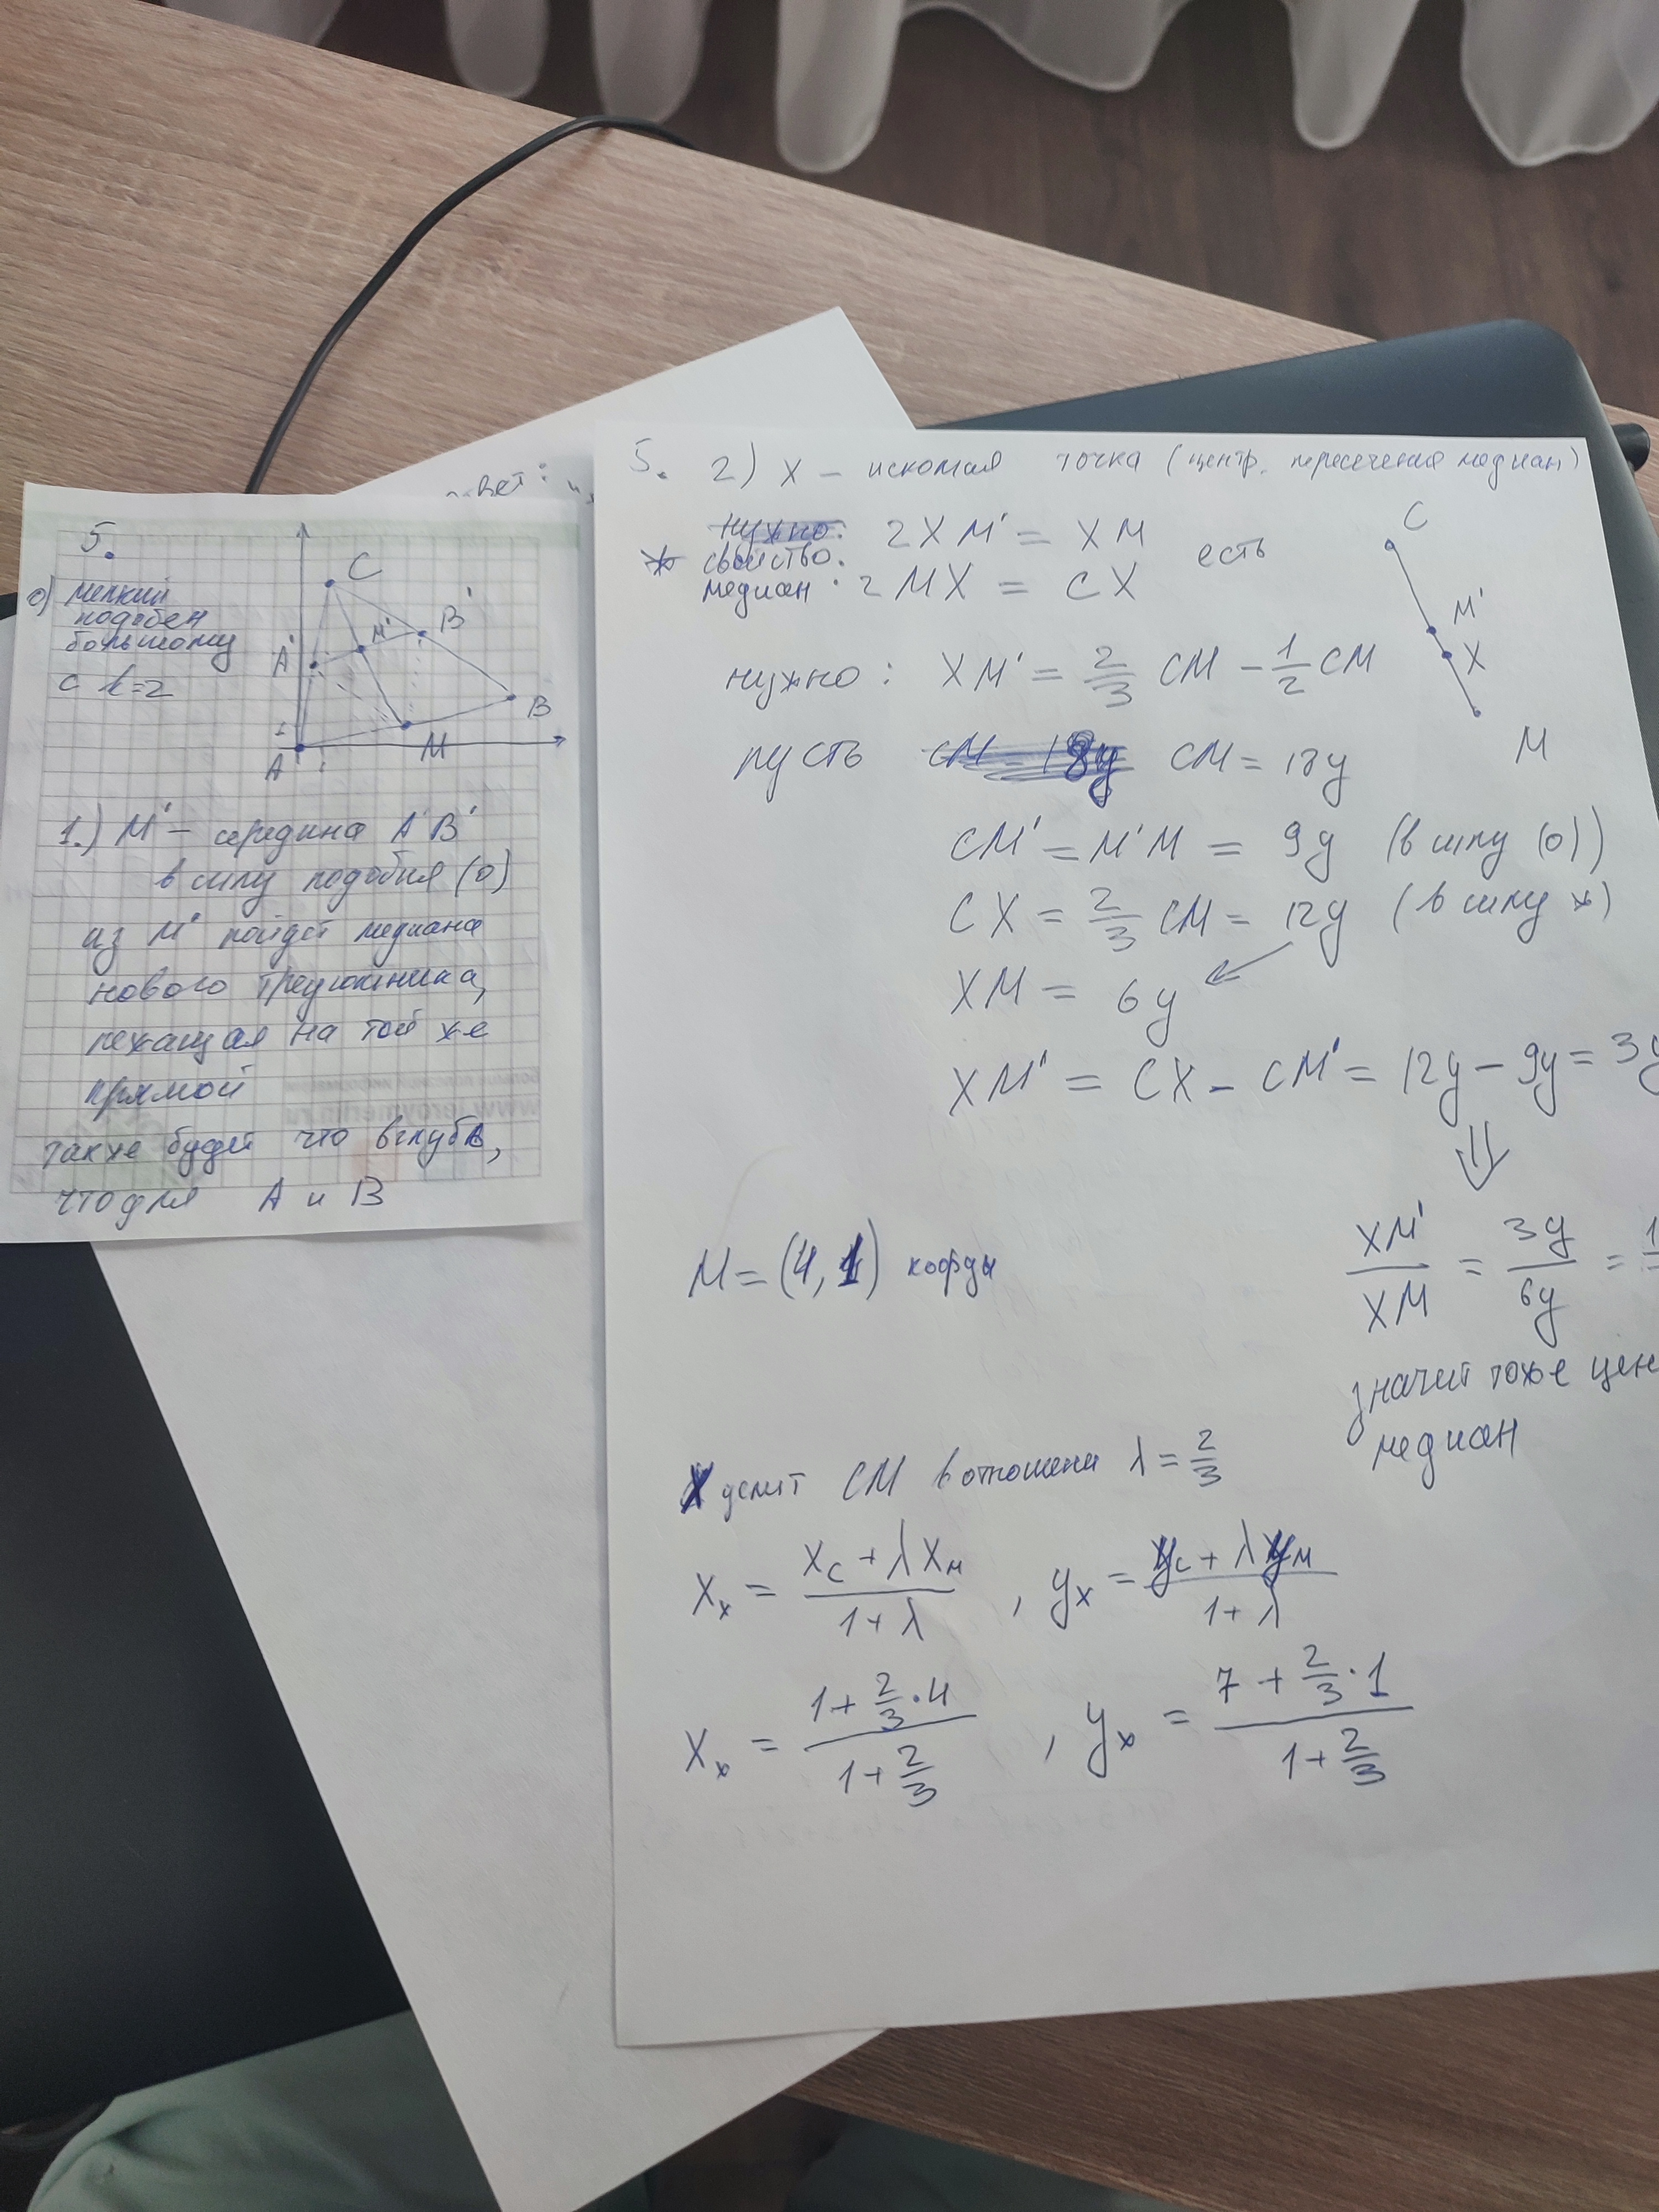 ответ:
5.
0) мелкий
подобен
большому
с k=2
C
B'
M'
A'
B
1
M
A
1
1.) M' – середина A'B'
в силу подобия (0)
из M' пойдет медиана
нового треугольника,
лежащая на той же
прямой
также будет что вглубь,
что для A и B
www.leroymerlin.ru
5. 2) X – искомая точка (центр. пересечения медиан)
нужно: 2XM' = XM
* свойство
медиан: 2MX = CX есть
C
M'
X
M
нужно: XM' = 2/3 CM - 1/2 CM
пусть CM = 18y CM = 18y
CM' = M'M = 9y (в силу (0))
CX = 2/3 CM = 12y (в силу *)
XM = 6y
XM' = CX - CM' = 12y - 9y = 3y
⇓
XM'/XM = 3y/6y = 1
значит тоже цен
медиан
M = (4, 1) коорды
X делит CM в отношении λ = 2/3
Xx = (Xc + λXм)/(1 + λ) , yx = (yc + λyм)/(1 + λ)
Xx = (1 + 2/3 · 4)/(1 + 2/3) , yx = (7 + 2/3 · 1)/(1 + 2/3)